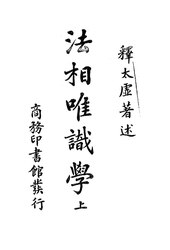 釋太虛著述
法相唯識學上
商務印書館發行